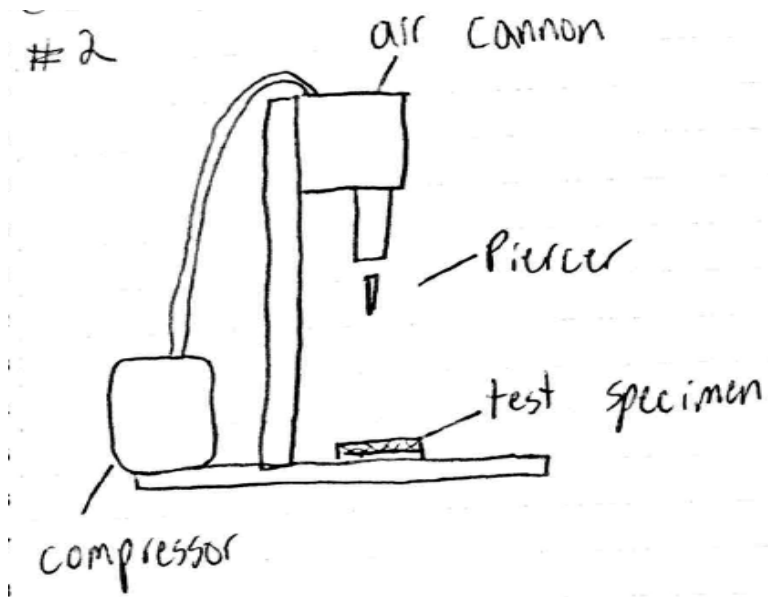 #2
air cannon
Piercer
test specimen
compressor